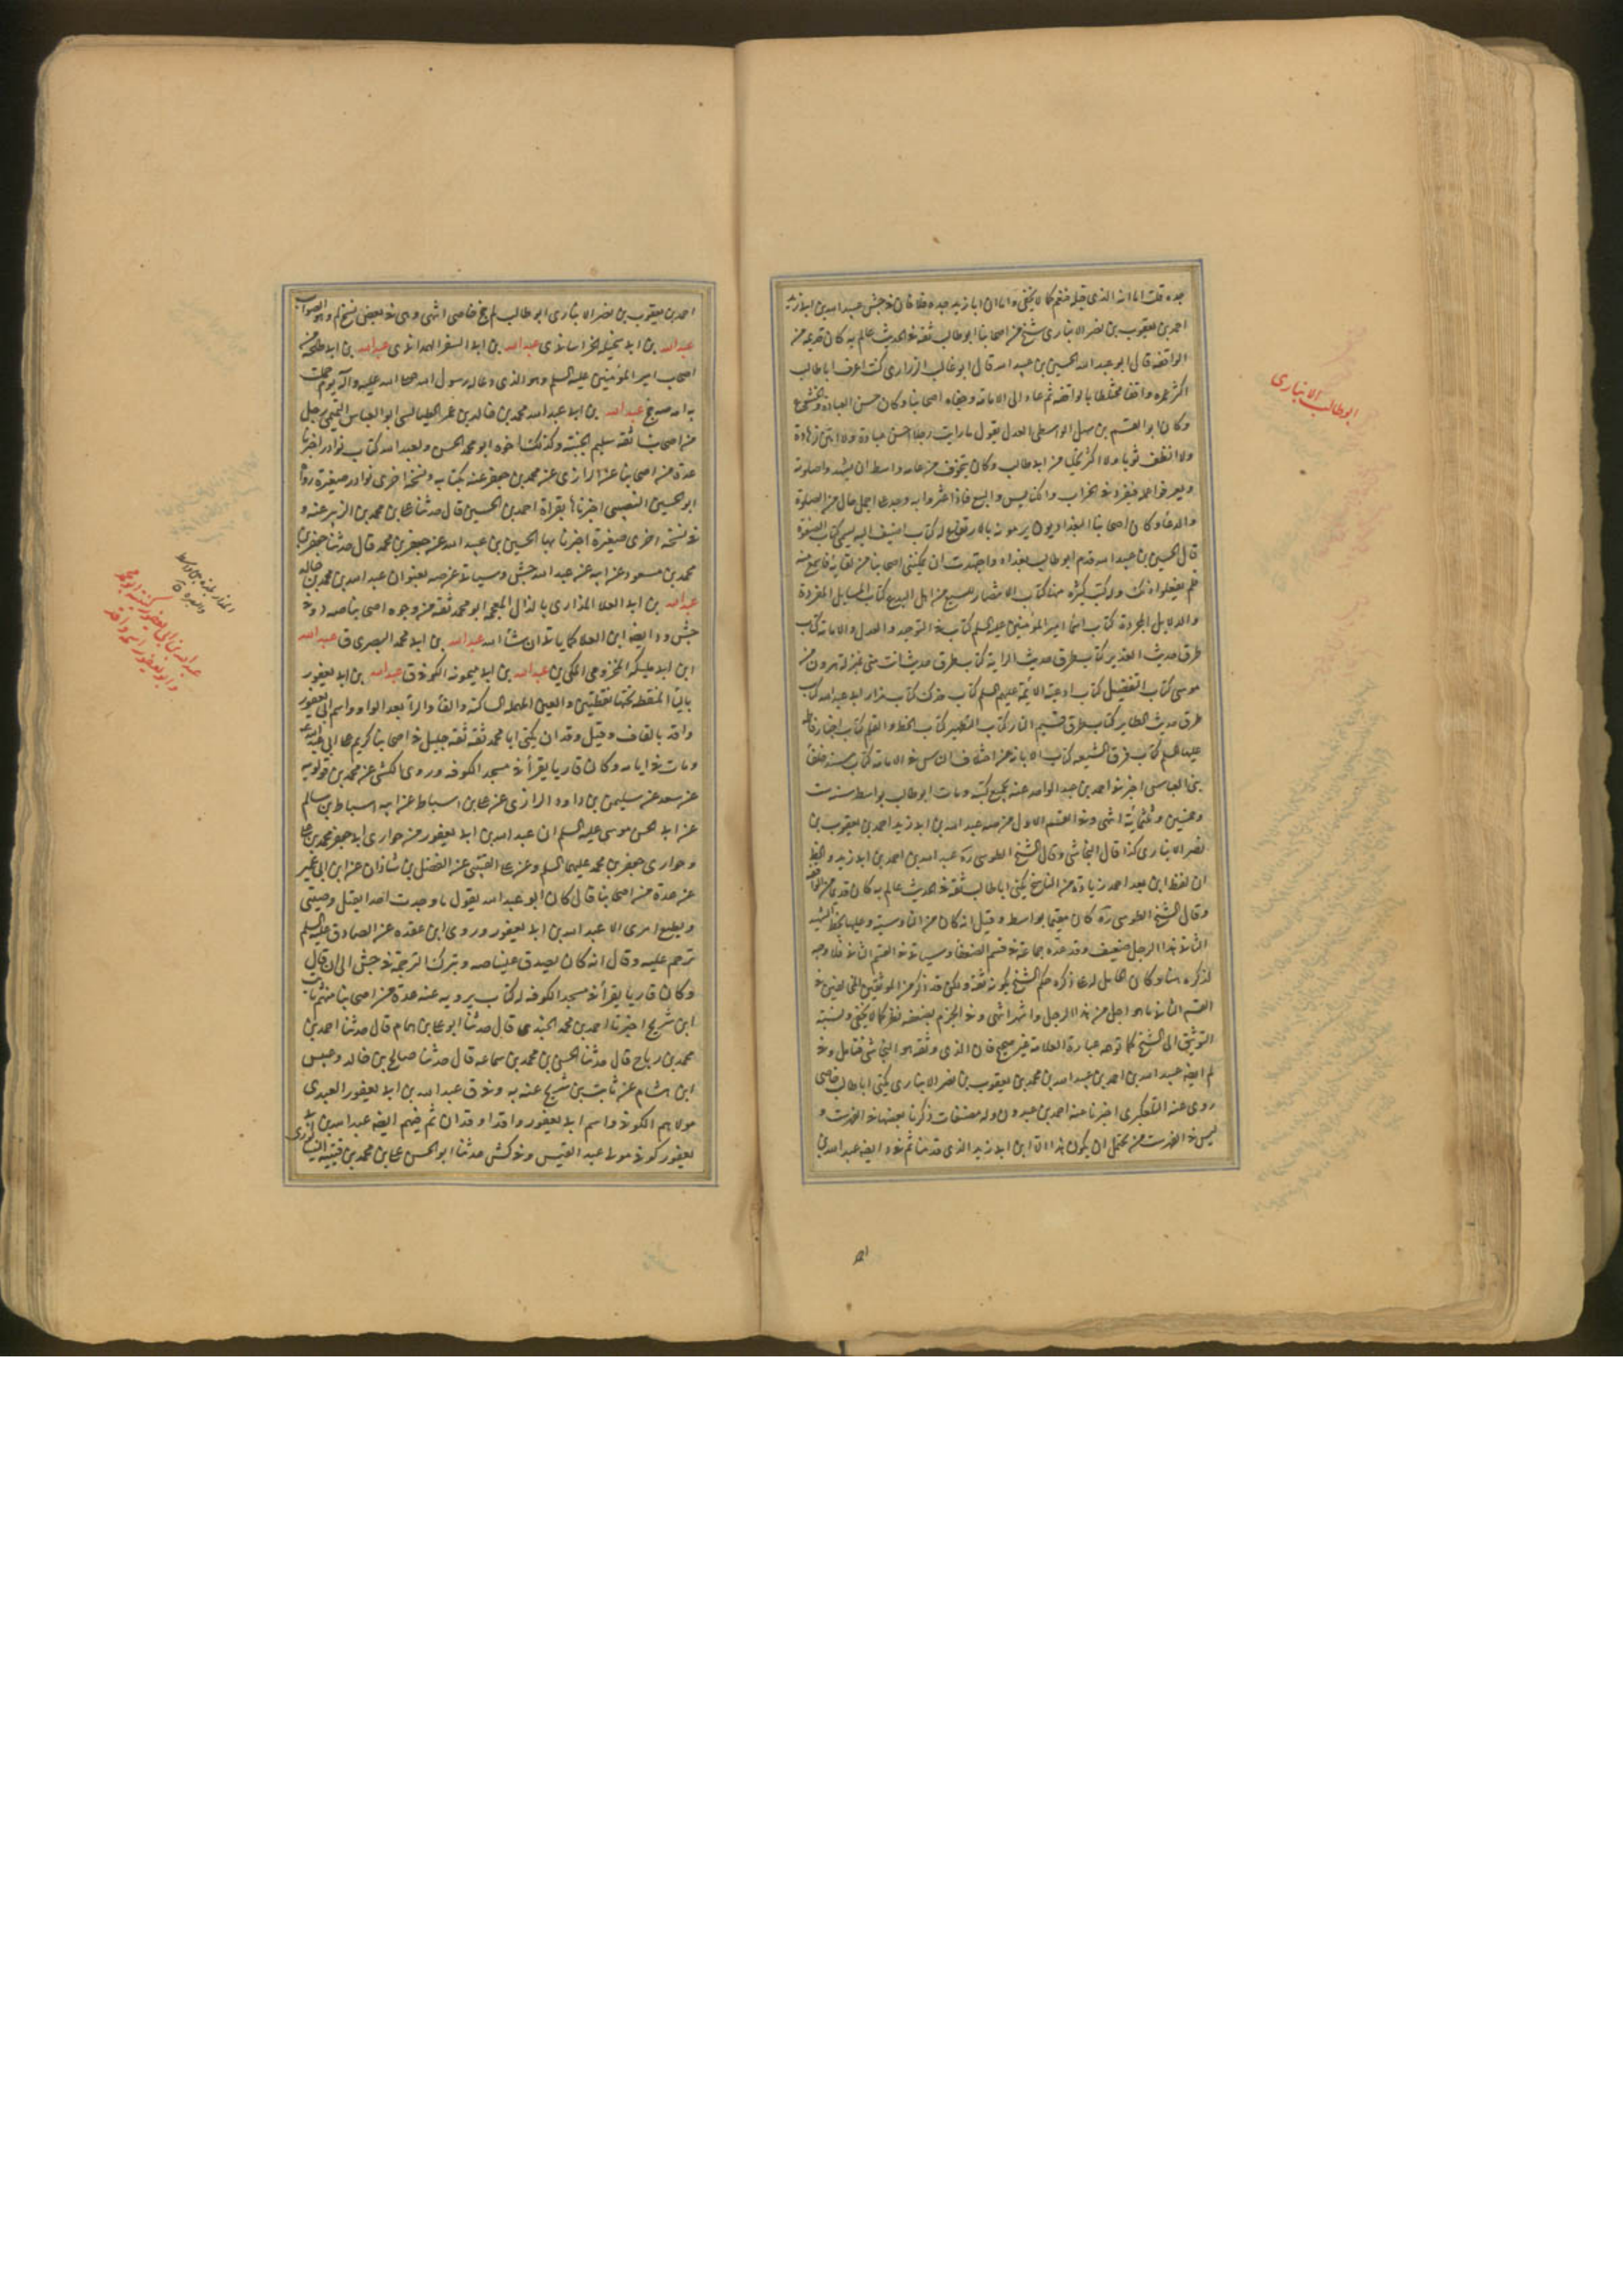 جده قلت اما انه الذى قبله فنعم كما لا يخفى واما ان ابا زيد جده فلا فان فى جش عبيد الله بن ابى زيد
احمد بن يعقوب بن نصر الانبارى شيخ من اصحابنا ابو طالب ثقة فى الحديث عالم به كان قديما من
الواقفه قال ابو عبد الله الحسين بن عبيد الله قال ابو غالب الزرارى كنت اعرف ابا طالب
اكثر عمره واقفا مختلطا بالواقفه ثم عاد الى الامامة وجفاه اصحابنا وكان حسن العبادة والخشوع
وكان ابو القسم بن سهل الواسطى العدل يقول ما رايت رجلا احسن عبادة ولا ابين زهادة
ولا انظف ثوبا ولا اكثر تحليا من ابى طالب وكان يتخوف من عامه واسط ان يشهدوا صلوته
ويعرفوا عمله فينفرد فى الخراب والكنايس والبيع فاذا عثروا به وجد على اجمل حال من الصلوة
والدعا وكان اصحابنا البغداديون يرمونه بالارتفاع له كتاب اضيف اليه يسمى كتاب الصفوة
قال الحسين بن عبيد الله قدم ابو طالب بغداد واجتهدت ان يمكننى اصحابنا من لقائه فاسمع منه
فلم يفعلوا ذلك وله كتب كثيره منها كتاب الانتصار للسبع من اهل البدع كتاب المسايل المفردة
والدلايل المجردة كتاب اسما امير المؤمنين عليه السلم كتاب فى التوحيد والعدل والامامة كتاب
طرق حديث الغدير كتاب طرق حديث الراية كتاب طرق حديث انت منى بمنزلة هرون من
موسى كتاب التفضيل كتاب ادعية الائمة عليهم السلم كتاب فدك كتاب مزار ابى عبد الله كتاب
طرق حديث الطاير كتاب طرق قسيم النار كتاب التطهير كتاب الخط والقلم كتاب اخبار فاطمة
عليها السلم كتاب فرق الشيعه كتاب الابانة عن اختلاف الناس فى الامامة كتاب مسند خلفا
بنى العباس اخبرنى احمد بن عبد الواحد عنه بجميع كتبه ومات ابو طالب بواسط سنه ست
وخمسين وثلثمائة انتهى وفى القسم الاول من صه عبد الله بن ابى زيد احمد بن يعقوب بن
نصر الانبارى كذا قال النجاشى وقال الشيخ الطوسى ره عبد الله بن احمد بن ابى زيد والظ
ان لفظ ابن بعد احمد زيادة من الناسخ يكنى ابا طالب ثقة فى الحديث عالم به كان قديما من الواقفه
وقال الشيخ الطوسى ره كان مقيما بواسط وقيل انه كان من الناوسية وعليها بخط الشهيد
الثانى هذا الرجل ضعيف وقد عده جماعة فى قسم الضعفا وسياتى فى القسم الثانى فلا وجه
لذكره هنا وكان الحامل له على ذكره حكم الشيخ بكونه ثقة ولكن قد ذكر من الموثقين المخالفين فى
القسم الثانى ما هو اجل من هذا الرجل واشهر انتهى وفى الجزم بضعفه نظر كما لا يخفى ونسبة
التوثيق الى الشيخ كما توهمه عبارة العلامة غير صحيح فان الذى وثقه هو النجاشى فتامل وفى
لم ايضا عبيد الله بن احمد بن عبيد الله بن محمد بن يعقوب بن نصر الانبارى يكنى ابا طالب خاصى
روى عنه التلعكبرى اخبرنا عنه احمد بن عبدون وله مصنفات ذكرنا بعضها فى الفهرست و
ليس فى الفهرست من يحتمل ان يكون هذا الا ابن ابى زيد الذى قدمنا ثم فى د ايضا عبد الله بن
ابو طالب الانبارى
احمد
احمد بن يعقوب بن نصر الانبارى ابو طالب لم جخ خاصى انتهى وهى فى بعض نسخ لم وهو الصواب
عبد الله بن ابى سخيله الخراسانى ى عبد الله بن ابى السفر الهمدانى ى عبد الله بن ابى طلحه من
اصحاب امير المؤمنين عليه السلم وهو الذى دعا له رسول الله صلى الله عليه واله يوم حملت
به امه صه جخ عبد الله بن ابى عبد الله محمد بن خالد بن عمر الطيالسى ابو العباس التميمى رجل
من اصحابنا ثقة سليم الجنبة وكذلك اخوه ابو محمد الحسن ولعبد الله كتاب نوادر اخبرنا
عدة من اصحابنا عن الزرارى عن محمد بن جعفر عنه بكتابه ونسخة اخرى نوادر صغيرة رواه
ابو الحسين النصيبى اخبرناها بقراة احمد بن الحسين قال حدثنا على بن محمد بن الزبير عنه و
فى نسخه اخرى صغيرة اخبرنا بها الحسين بن عبيد الله عن جعفر بن محمد قال حدثنا جعفر بن
محمد بن مسعود عن ابيه عن عبد الله جش وسياتى عن صه بعنوان عبد الله بن محمد بن خالد
عبد الله بن ابى العلا المذارى بالذال المعجمه ابو محمد ثقة من وجوه اصحابنا صه د وفى
جش و د ايضا ابن العلا كما ياتى ان شا الله عبد الله بن ابى محمد البصرى ق عبد الله
ابن ابى مليكه المخزومى المكى ين عبد الله بن ابى ميمونه الكوفى ق عبد الله بن ابى يعفور
باليا المنقطه تحتها نقطتين والعين المهمله الساكنه والفا والرا بعد الواو واسم ابى يعفور
واقد بالقاف وقيل وقدان يكنى ابا محمد ثقة ثقة جليل فى اصحابنا كريم على ابى عبد الله
ومات فى ايامه وكان قاريا يقرأ فى مسجد الكوفه وروى الكشى عن محمد بن قولويه
عن سعد عن سليمن بن داود الرازى عن على بن اسباط عن ابيه اسباط بن سالم
عن ابى الحسن موسى عليه السلم ان عبد الله بن ابى يعفور من حوارى ابى جعفر محمد بن على
وحوارى جعفر بن محمد عليهما السلم وعن على القتيبى عن الفضل بن شاذان عن ابن ابى عمير
عن عدة من اصحابنا قال كان ابو عبد الله يقول ما وجدت احدا يقبل وصيتى
ويطيع امرى الا عبد الله بن ابى يعفور وروى ابن عقده عن الصادق عليه السلم
ترحم عليه وقال انه كان يصدق علينا صه وبترك الترجمة فى جش الى ان قال
وكان قاريا يقرأ فى مسجد الكوفه له كتاب يرويه عنه عدة من اصحابنا منهم ثابت
ابن شريح اخبرنا احمد بن محمد الجندى قال حدثنا ابو على بن همام قال حدثنا احمد بن
محمد بن رباح قال حدثنا الحسن بن محمد بن سماعه قال حدثنا صالح بن خالد وعبيس
ابن هشام عن ثابت بن شريح عنه به وفى ق عبد الله بن ابى يعفور العبدى
مولاهم الكوفى واسم ابى يعفور واقد او قدان ثم فيهم ايضا عبد الله بن ابى
يعفور كوفى مولى عبد القيس وفى كش حدثنا ابو الحسن على بن محمد بن قتيبه النيسابورى
عبد الله بن ابى يعفور كنيته ابو محمد
وابو يعفور اسمه واقد